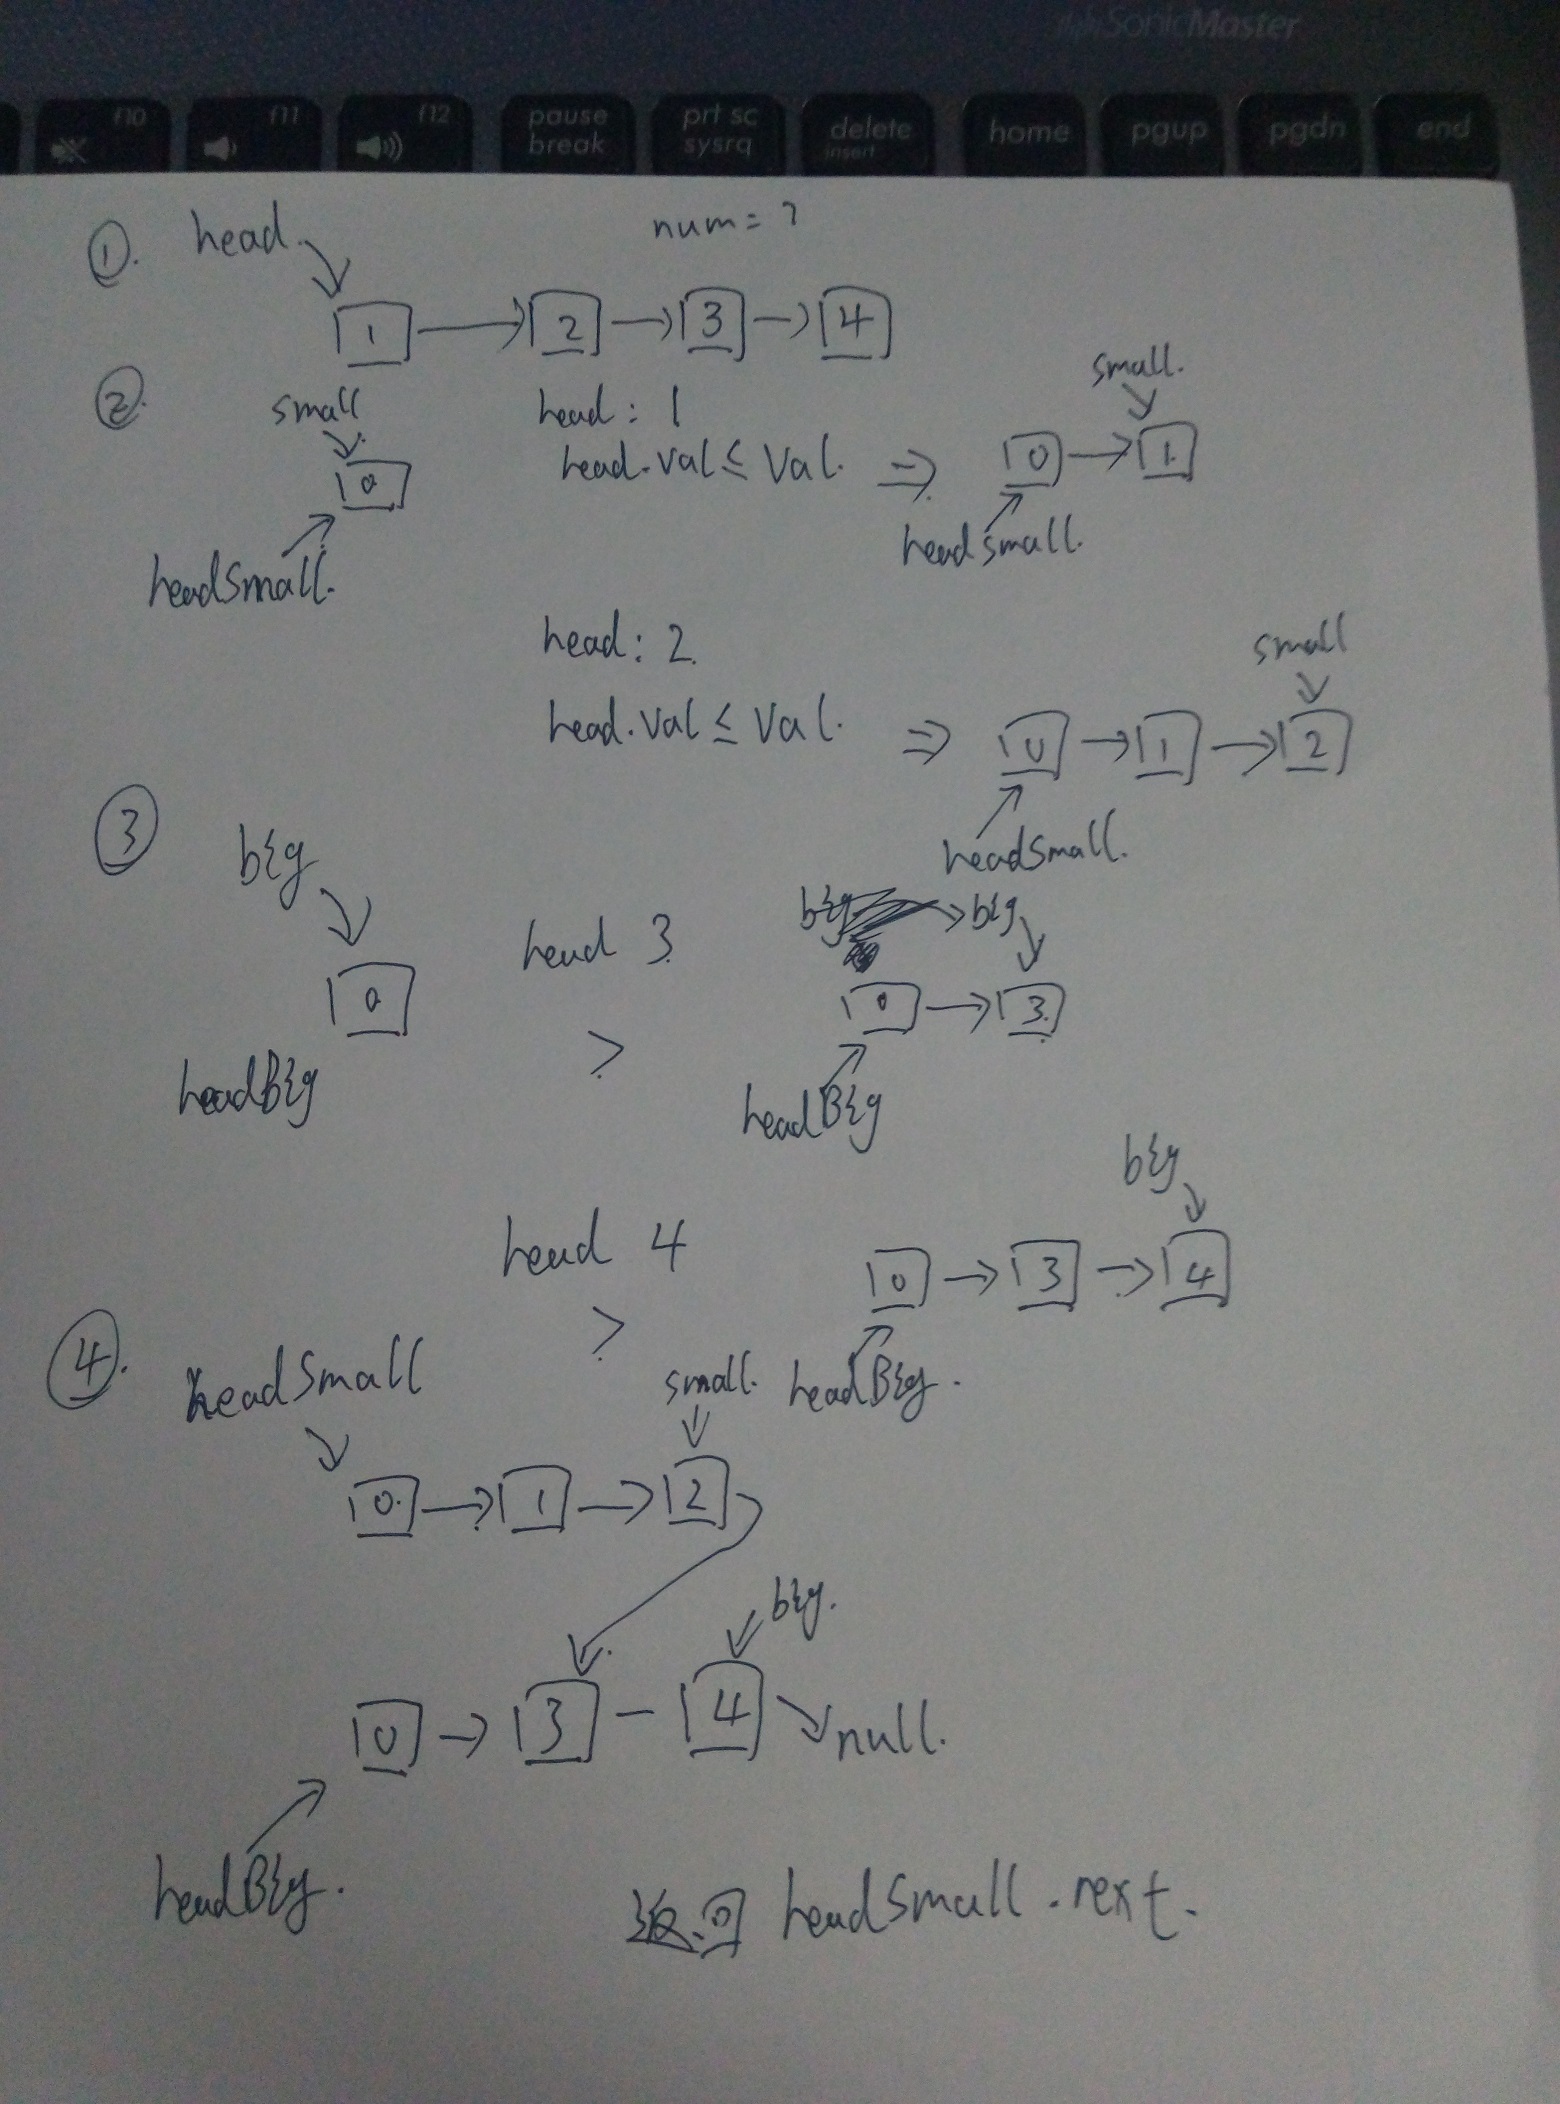 SonicMaster
f10 f11 f12 pause break prt sc sysrq delete insert home pgup pgdn end
①. head. num = ?
1 → 2 → 3 → 4
②. small head: 1 small.
0 head.val ≤ Val. ⇒ 0 → 1
headSmall. headSmall.
head: 2. small
head.val ≤ Val. ⇒ 0 → 1 → 2
headSmall.
③ big
big head 3 big
0 > 0 → 3
headBig headBig
big
head 4 0 → 3 → 4
>
④. headSmall small. headBig.
0 → 1 → 2
big.
0 → 3 - 4 → null.
headBig. 返回 headSmall.next.